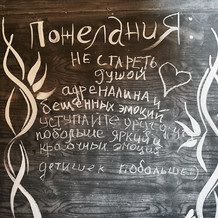 Пожелания:
НЕ СТАРЕТЬ
ДУШОЙ
адреналина и
бешенных эмоций
УСТУПАЙТЕ друг другу
побольше ярких и
красочных эмоций
детишек побольше:)